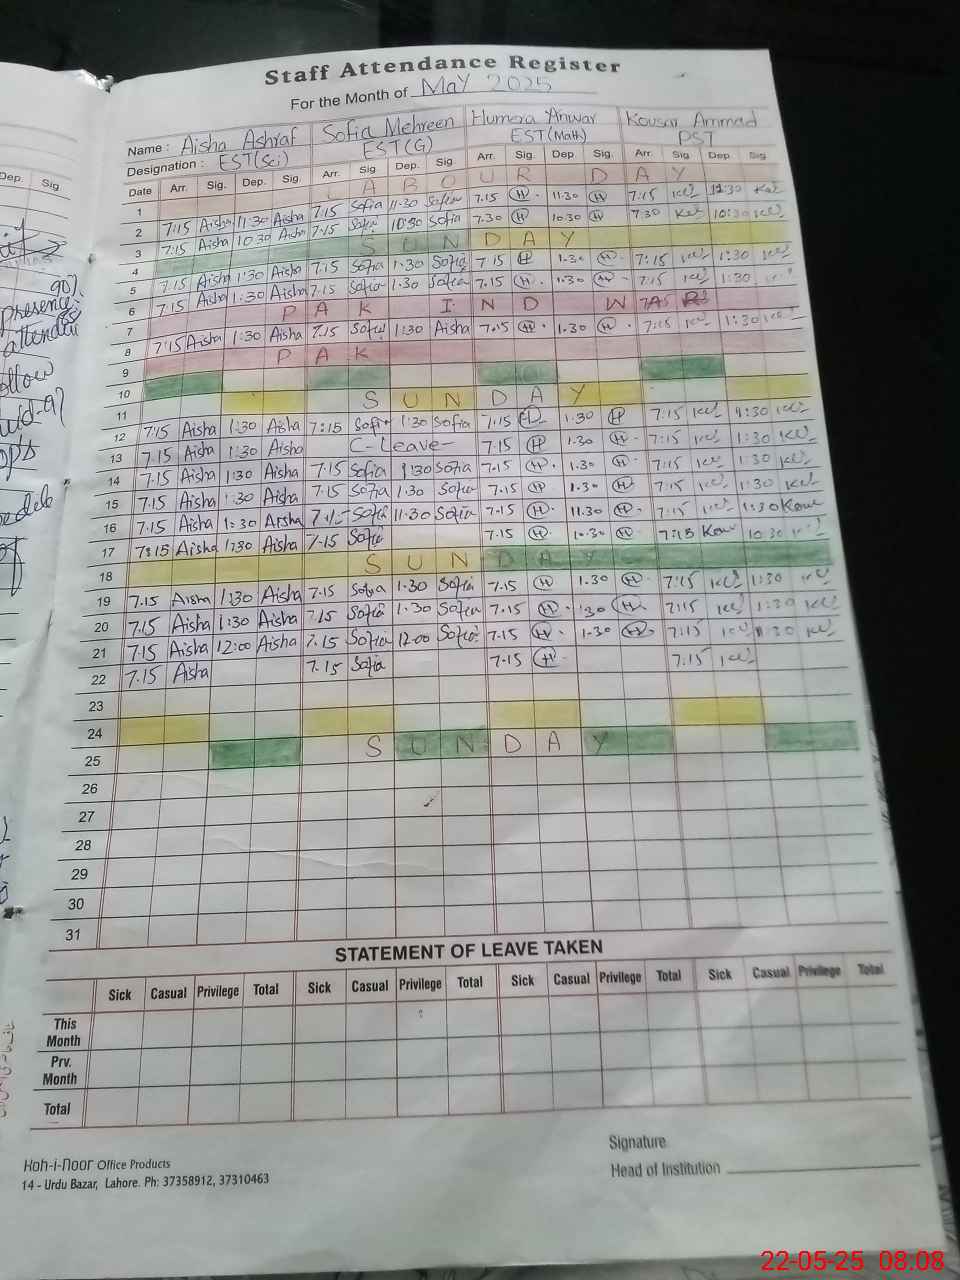 Staff Attendance Register
For the Month of May 2025
Name : Aisha Ashraf Sofia Mehreen Humera Anwar Kousar Ammad
Designation : EST(Sci) EST(G) EST(Math) PST
Date Arr. Sig. Dep. Sig. Arr. Sig. Dep. Sig Arr. Sig. Dep. Sig. Arr. Sig Dep. Sig
1 LABOUR DAY
2 7:15 Aisha 11:30 Aisha 7.15 Sofia 11.30 Sofia 7.15 H 11.30 H 7:15
3 7:15 Aisha 10:30 Aisha 7.15 Sofia 10:30 Sofia 7.30 H 10.30 H 7:30 10:30
4 SUNDAY
5 7:15 Aisha 1:30 Aisha 7.15 Sofia 1.30 Sofia 7.15 H 1.30 H 7:15 1:30
6 7:15 Aisha 1:30 Aisha 7.15 Sofia 1.30 Sofia 7.15 H 1.30 H 7:15 1:30
7 PAK IND WAR
8 7:15 Aisha 1:30 Aisha 7.15 Sofia 1:30 Aisha 7.15 H 1.30 H 7:15 1:30
9 PAK
10
11 SUNDAY
12 7:15 Aisha 1:30 Aisha 7:15 Sofia 1:30 Sofia 7.15 H 1.30 H 7:15 1:30
13 7.15 Aisha 1:30 Aisha C-Leave- 7.15 H 1.30 H 7:15 1:30
14 7.15 Aisha 1:30 Aisha 7.15 Sofia 1:30 Sofia 7.15 H 1.30 H 7:15 1:30
15 7.15 Aisha 1:30 Aisha 7.15 Sofia 1.30 Sofia 7.15 H 1.30 H 7:15 1:30
16 7.15 Aisha 1:30 Aisha 7.15 Sofia 11:30 Sofia 7.15 H 11.30 H 7:15 1:30
17 7:15 Aisha 1:30 Aisha 7.15 Sofia 7.15 H 10.30 H 7:15 10:30
18 SUNDAY
19 7.15 Aisha 1:30 Aisha 7.15 Sofia 1.30 Sofia 7.15 H 1.30 H 7:15 1:30
20 7.15 Aisha 1:30 Aisha 7.15 Sofia 1.30 Sofia 7.15 H 1:30 H 7:15 1:30
21 7.15 Aisha 12:00 Aisha 7.15 Sofia 12:00 Sofia 7.15 H 1.30 H 7:15
22 7.15 Aisha 7.15 Sofia 7.15 H 7.15
23
24
25 SUNDAY
26
27
28
29
30
31
STATEMENT OF LEAVE TAKEN
Sick Casual Privilege Total Sick Casual Privilege Total Sick Casual Privilege Total Sick Casual Privilege Total
This Month
Prv. Month
Total
Signature
Head of Institution
Koh-i-Noor Office Products
14 - Urdu Bazar, Lahore. Ph: 37358912, 37310463
Dep. Sig
90%
presence
22-05-25 08.08